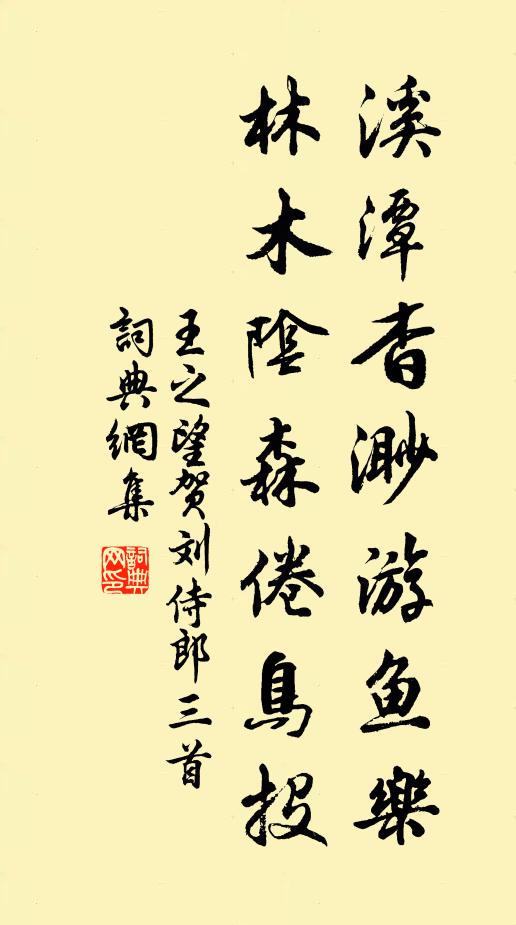 溪潭杳渺游鱼樂
林木陰森倦鳥投
王之望贺刘侍郎三首
詞典網集
詞典網印